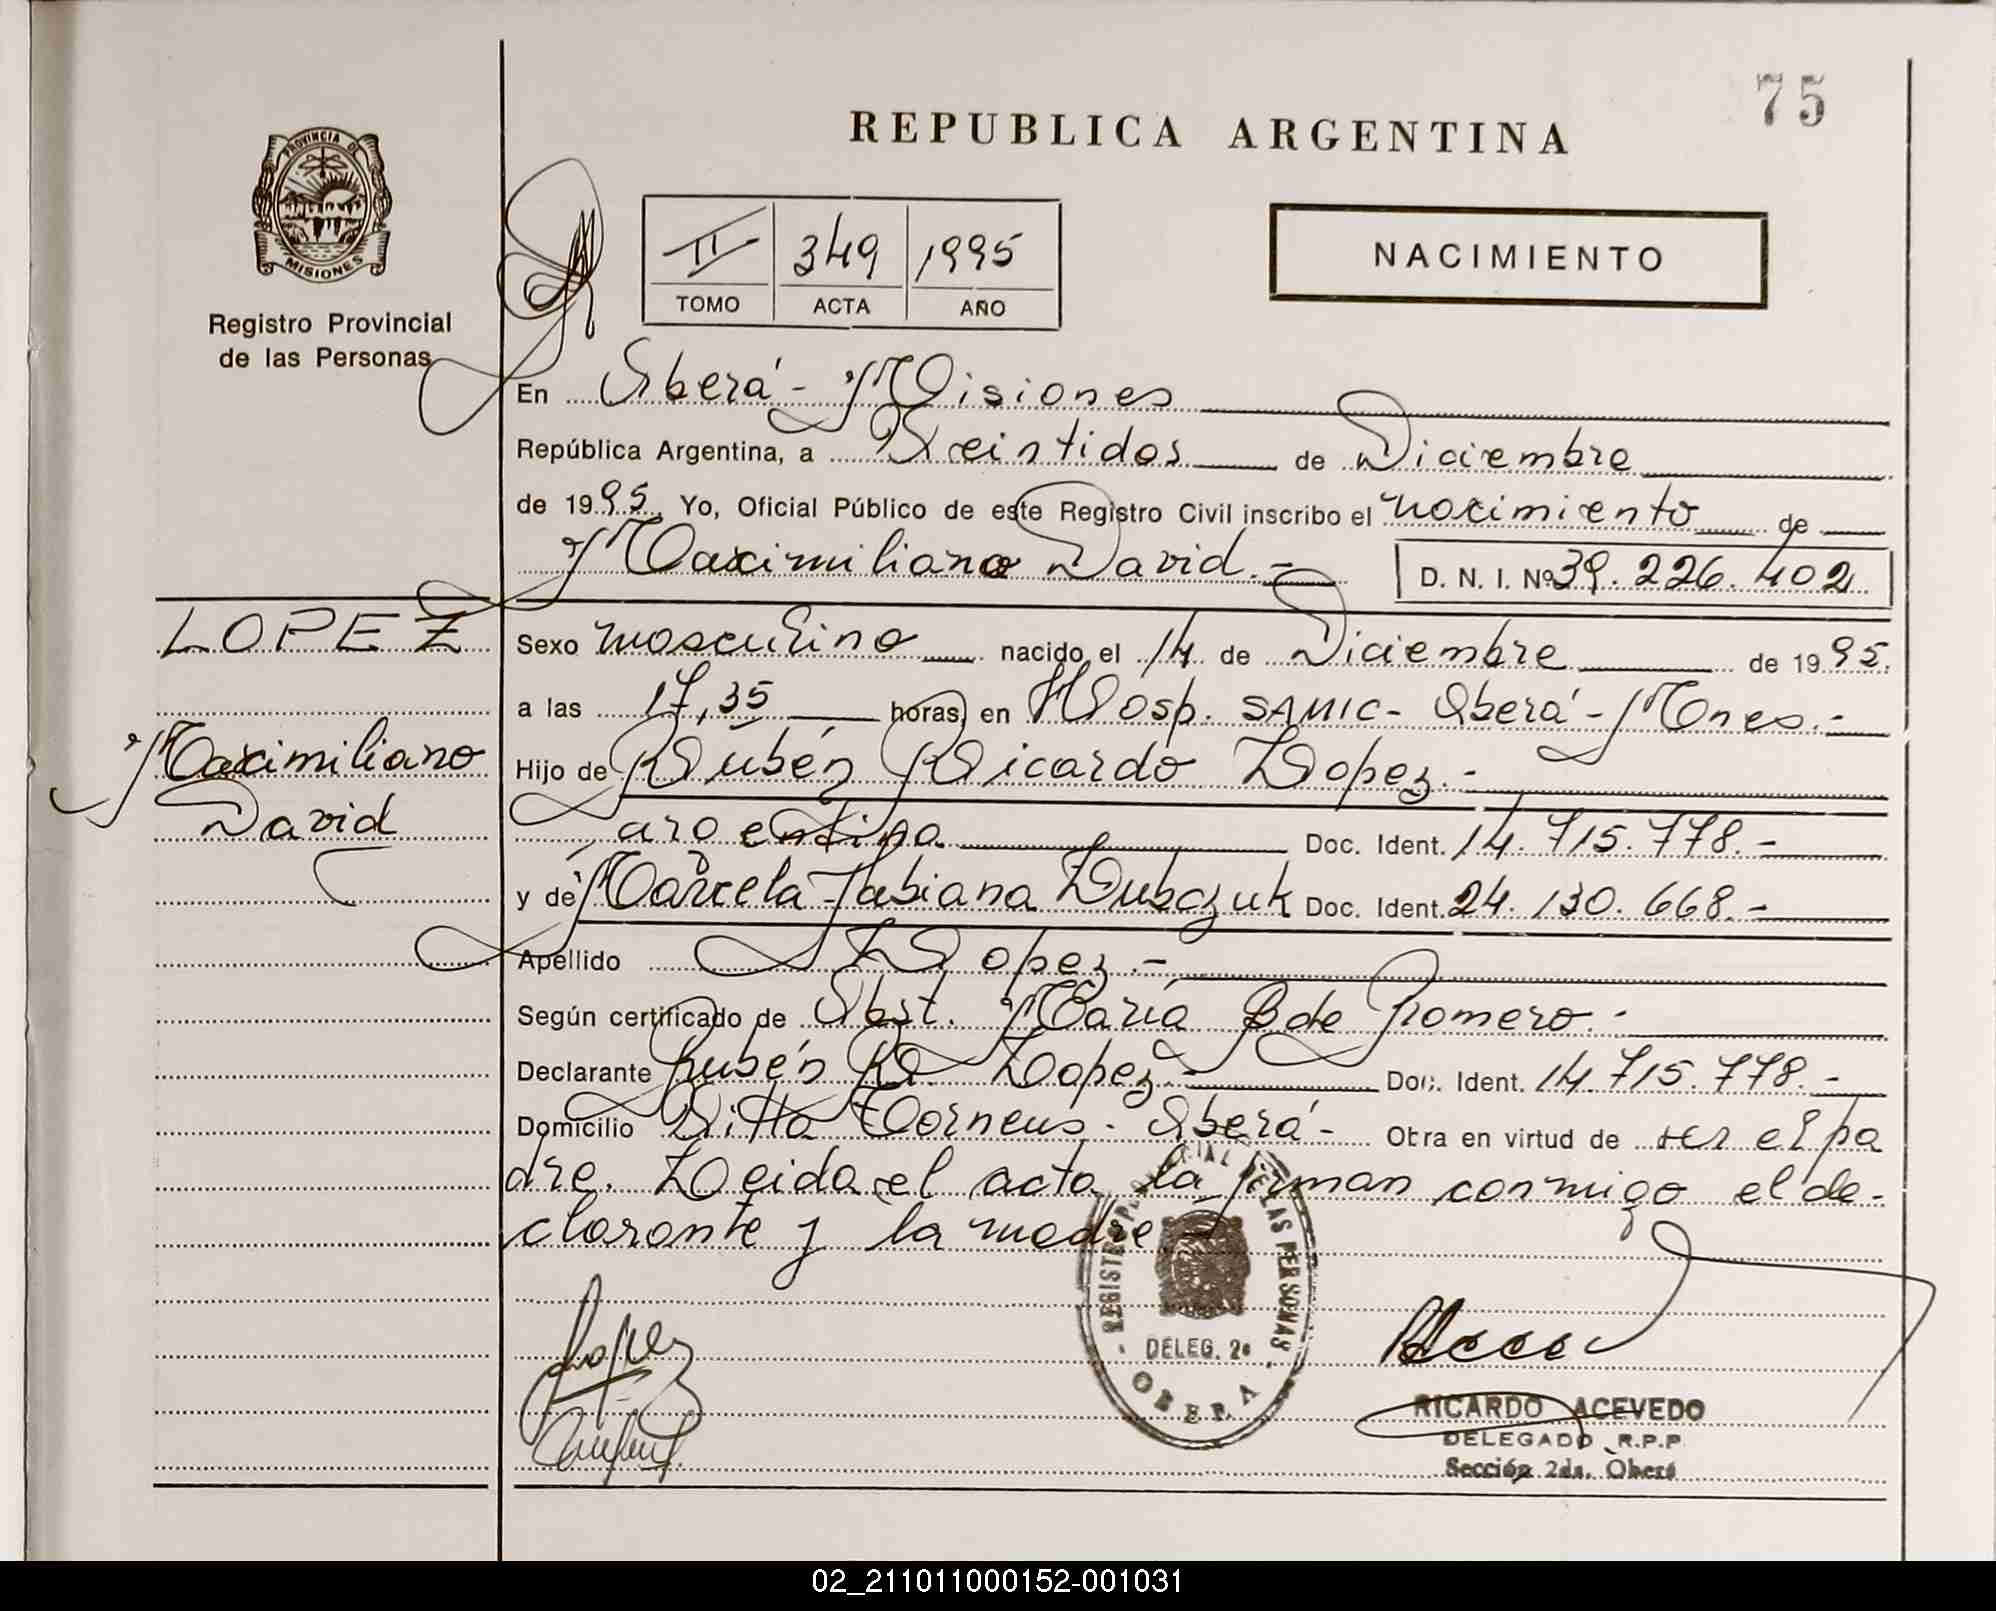 75
REPUBLICA ARGENTINA
PROVINCIA DE
MISIONES
Registro Provincial
de las Personas
II 349 1995
TOMO ACTA AÑO
NACIMIENTO
En Oberá - Misiones
República Argentina, a Veintidos de Diciembre
de 1995. Yo, Oficial Público de este Registro Civil inscribo el nacimiento de
Maximiliano David.- D. N. I. Nº 39.226.402
LOPEZ
Sexo masculino nacido el 14 de Diciembre de 1995.
a las 17,35 horas, en Hosp. SAMIC - Oberá - Mones.-
Maximiliano
David
Hijo de Rubén Ricardo Lopez.-
argentina Doc. Ident. 14.715.778.-
y de Marcela Fabiana Dubczuk Doc. Ident. 24.130.668.-
Apellido Lopez.-
Según certificado de Obst. María B de Romero.-
Declarante Rubén R. Lopez.- Doc. Ident. 14.715.778.-
Domicilio Villa Torneus - Oberá - Obra en virtud de ser el pa
dre. Leida el acta la firman conmigo el de-
clarante y la madre.-
Lopez
REGISTRO PROVINCIAL DE LAS PERSONAS
DELEG. 2ª
OBERA
RICARDO ACEVEDO
DELEGADO R.P.P
Sección 2da. Oberá
02_211011000152-001031